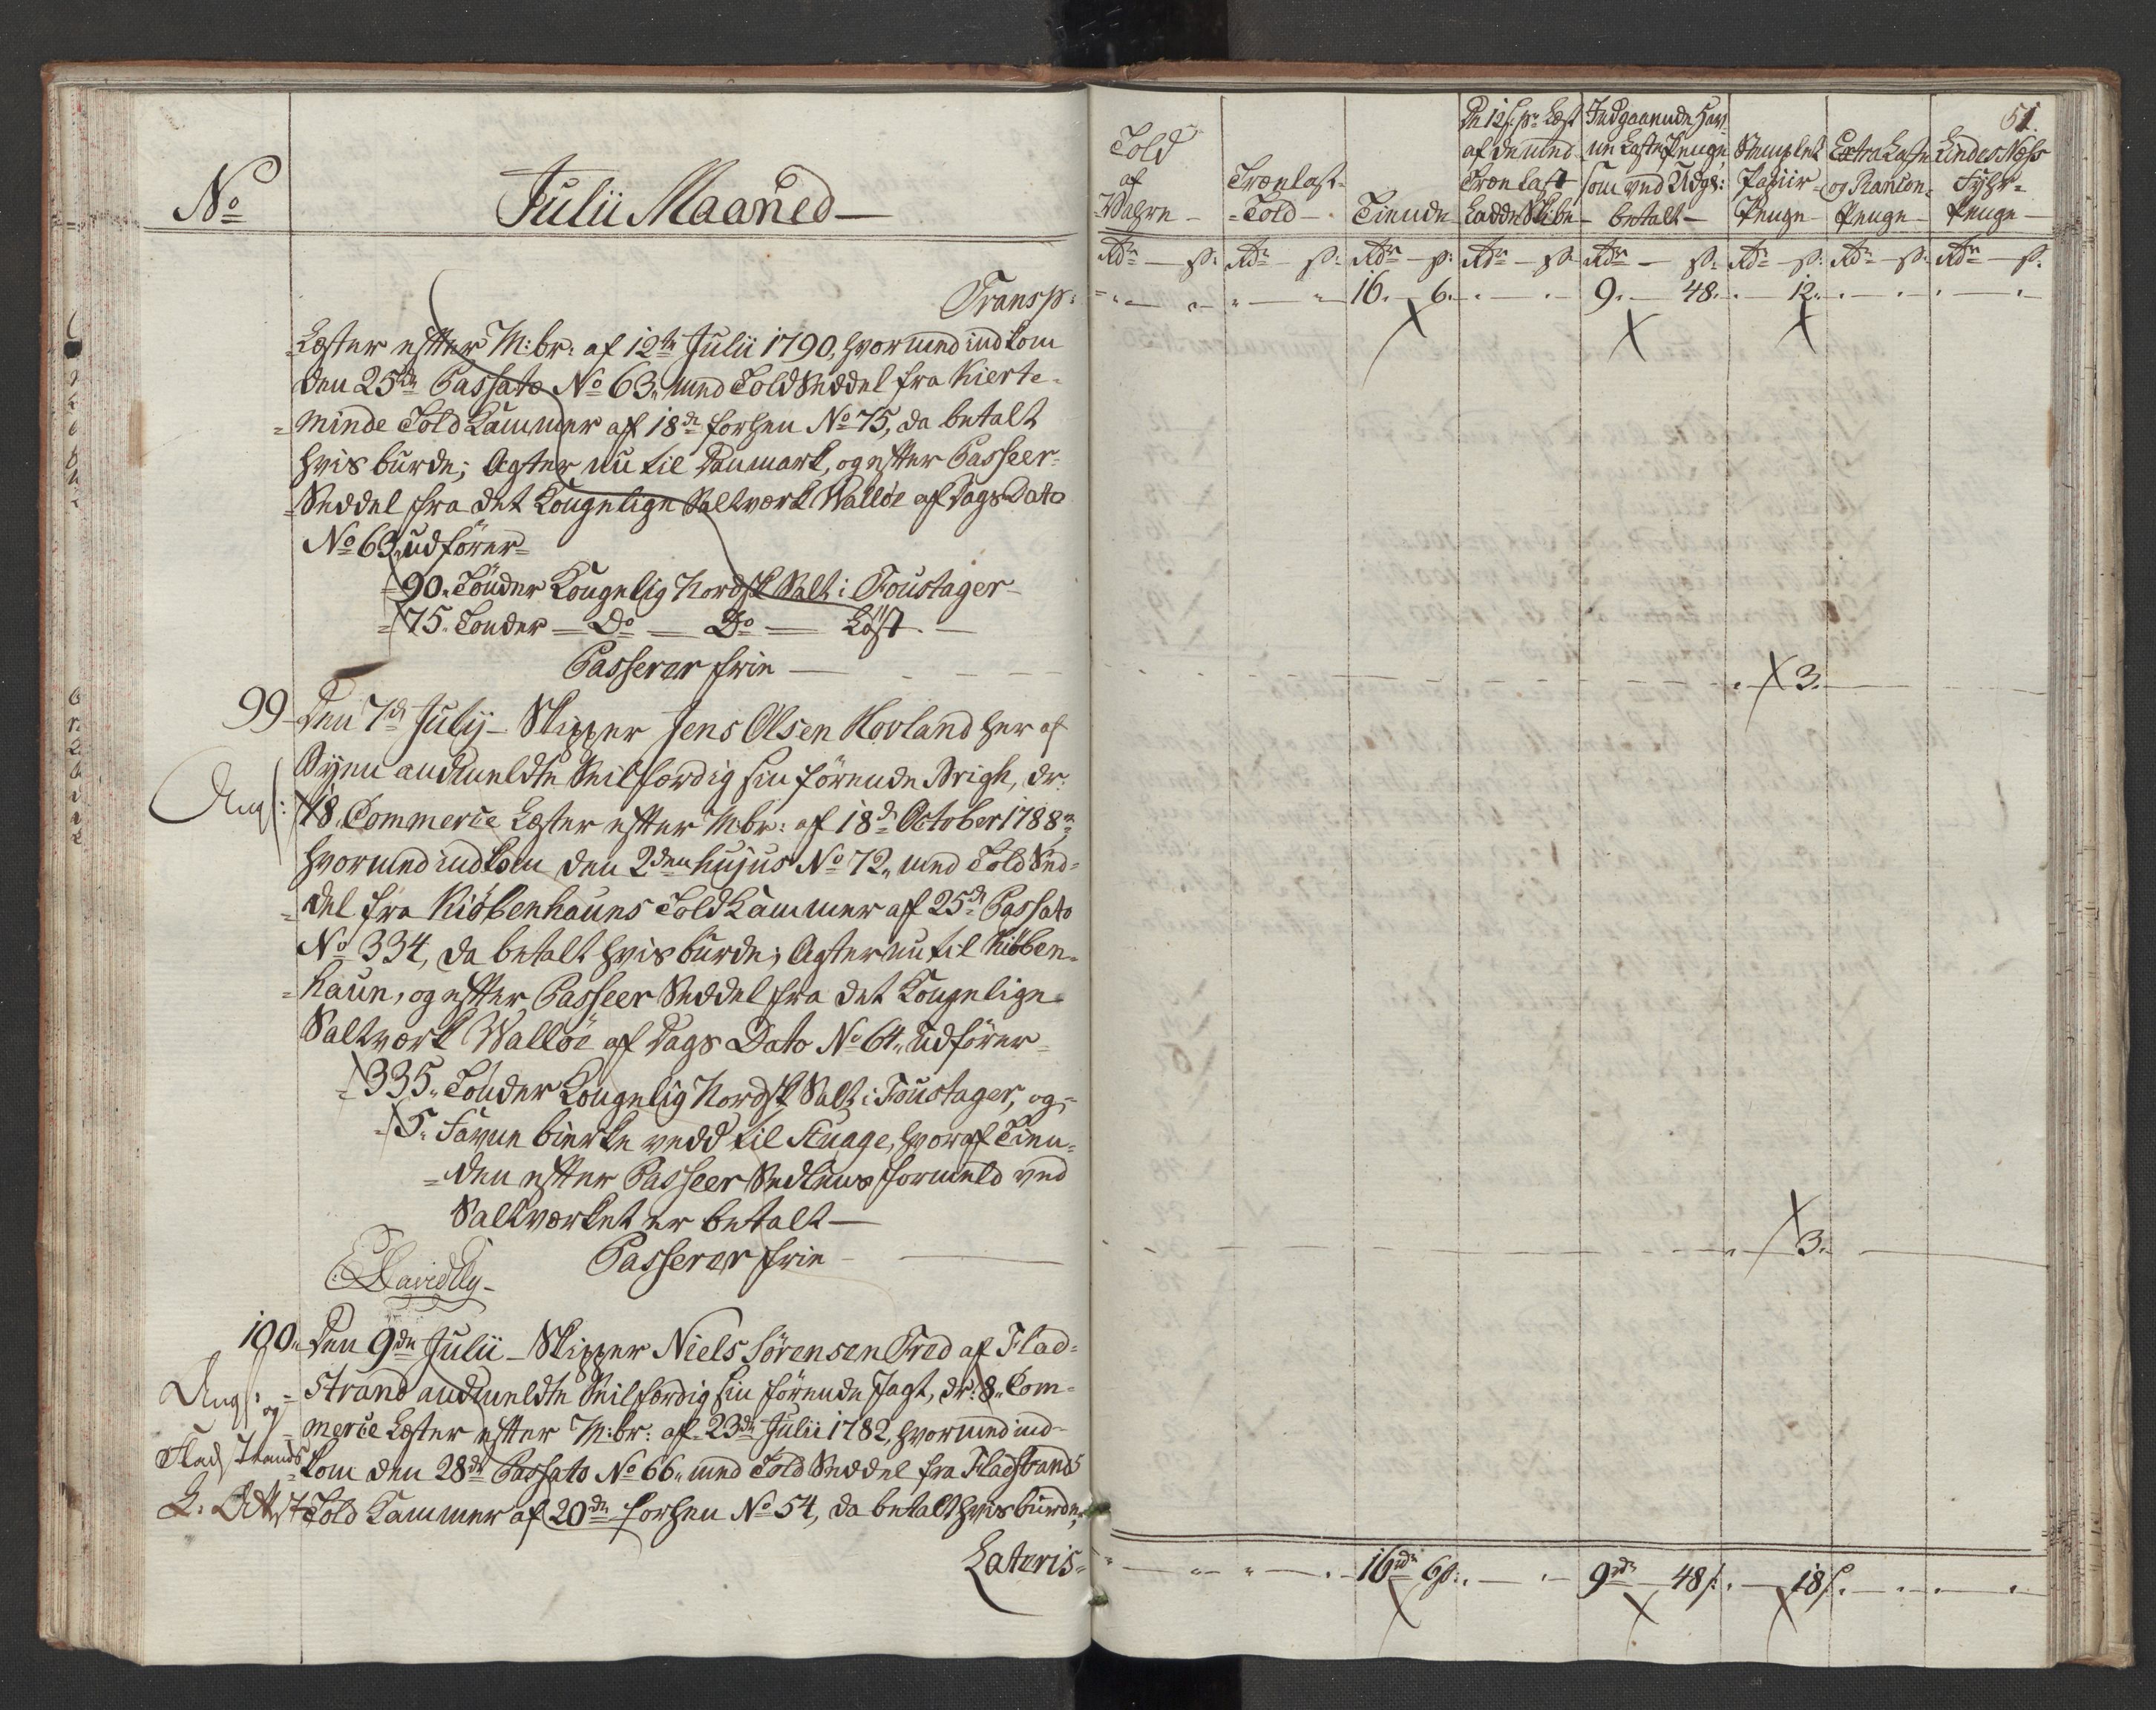 No
Julii Maaned
Transp:
Læster efter M:br: af 12te Julii 1790, hvormed indkom
den 25de Passato No 63, med Told Seddel fra Kierte-
minde Told Kammer af 18de forhen No 75, da betalt
hvis burde; Agter nu til Danmark, og efter Passeer-
Seddel fra det Kongelige Saltværk Walløe af Dags Dato
No 63, udfører
90. Tønder Kongelig Nordsk Salt i Foustager
75. Tønder — Do — Do — Løst
Passerer frie
99 Den 7de July - Skipper Jens Olsen Hovland her af
Byen andmeldte Seilfærdig sin førende Brigh, dr:
18. Commerce Læster efter M:br: af 18de October 1788
hvormed indkom den 2den hujus No 72, med Told Sed-
del fra Kiøbenhauns Told Kammer af 25de Passato
No 334, da betalt hvis burde; Agter nu til Kiøben-
haun, og efter Passeer Seddel fra det Kongelige
Saltværk Walløe af Dags Dato No 64, udfører
335. Tønder Kongelig Nordsk Salt i Foustager, og
5. Favne bierke vedd til Stuage, hvoraf Tien-
den efter Passeer Sedlens formeld ved
Saltværket er betalt
Passerer frie
100. Den 9de Julii - Skipper Niels Sørensen Fred af Flad-
strand andmeldte Seilfærdig sin førende Jagt, dr: 8. Com-
merce Læster efter M:br: af 23de Julii 1782, hvormed ind-
kom den 28de Passato No 66, med Told Seddel fra Fladstrands
Told Kammer af 20de forhen No 54, da betalt hvis burde,
Lateris
og
Fladstrands
51.
Told af Wahre
Trælast-Told
Tiende
De 12 s. pr Læst af de med Træ Last Ladde Skibe
Indgaaende Hav: ne Læste Penge som ved Udgl: betalt
Stemplet Papiir Penge
Extra Læste og Rancon Penge
Lindes Næss Fyhr Penge
Rdr s. Rdr s. Rdr s. Rdr s. Rdr s. Rdr s. Rdr s. Rdr s.
16. 6. 9. 48. 12.
3.
3.
16rdr 6s. 9rdr 48s. 18s.